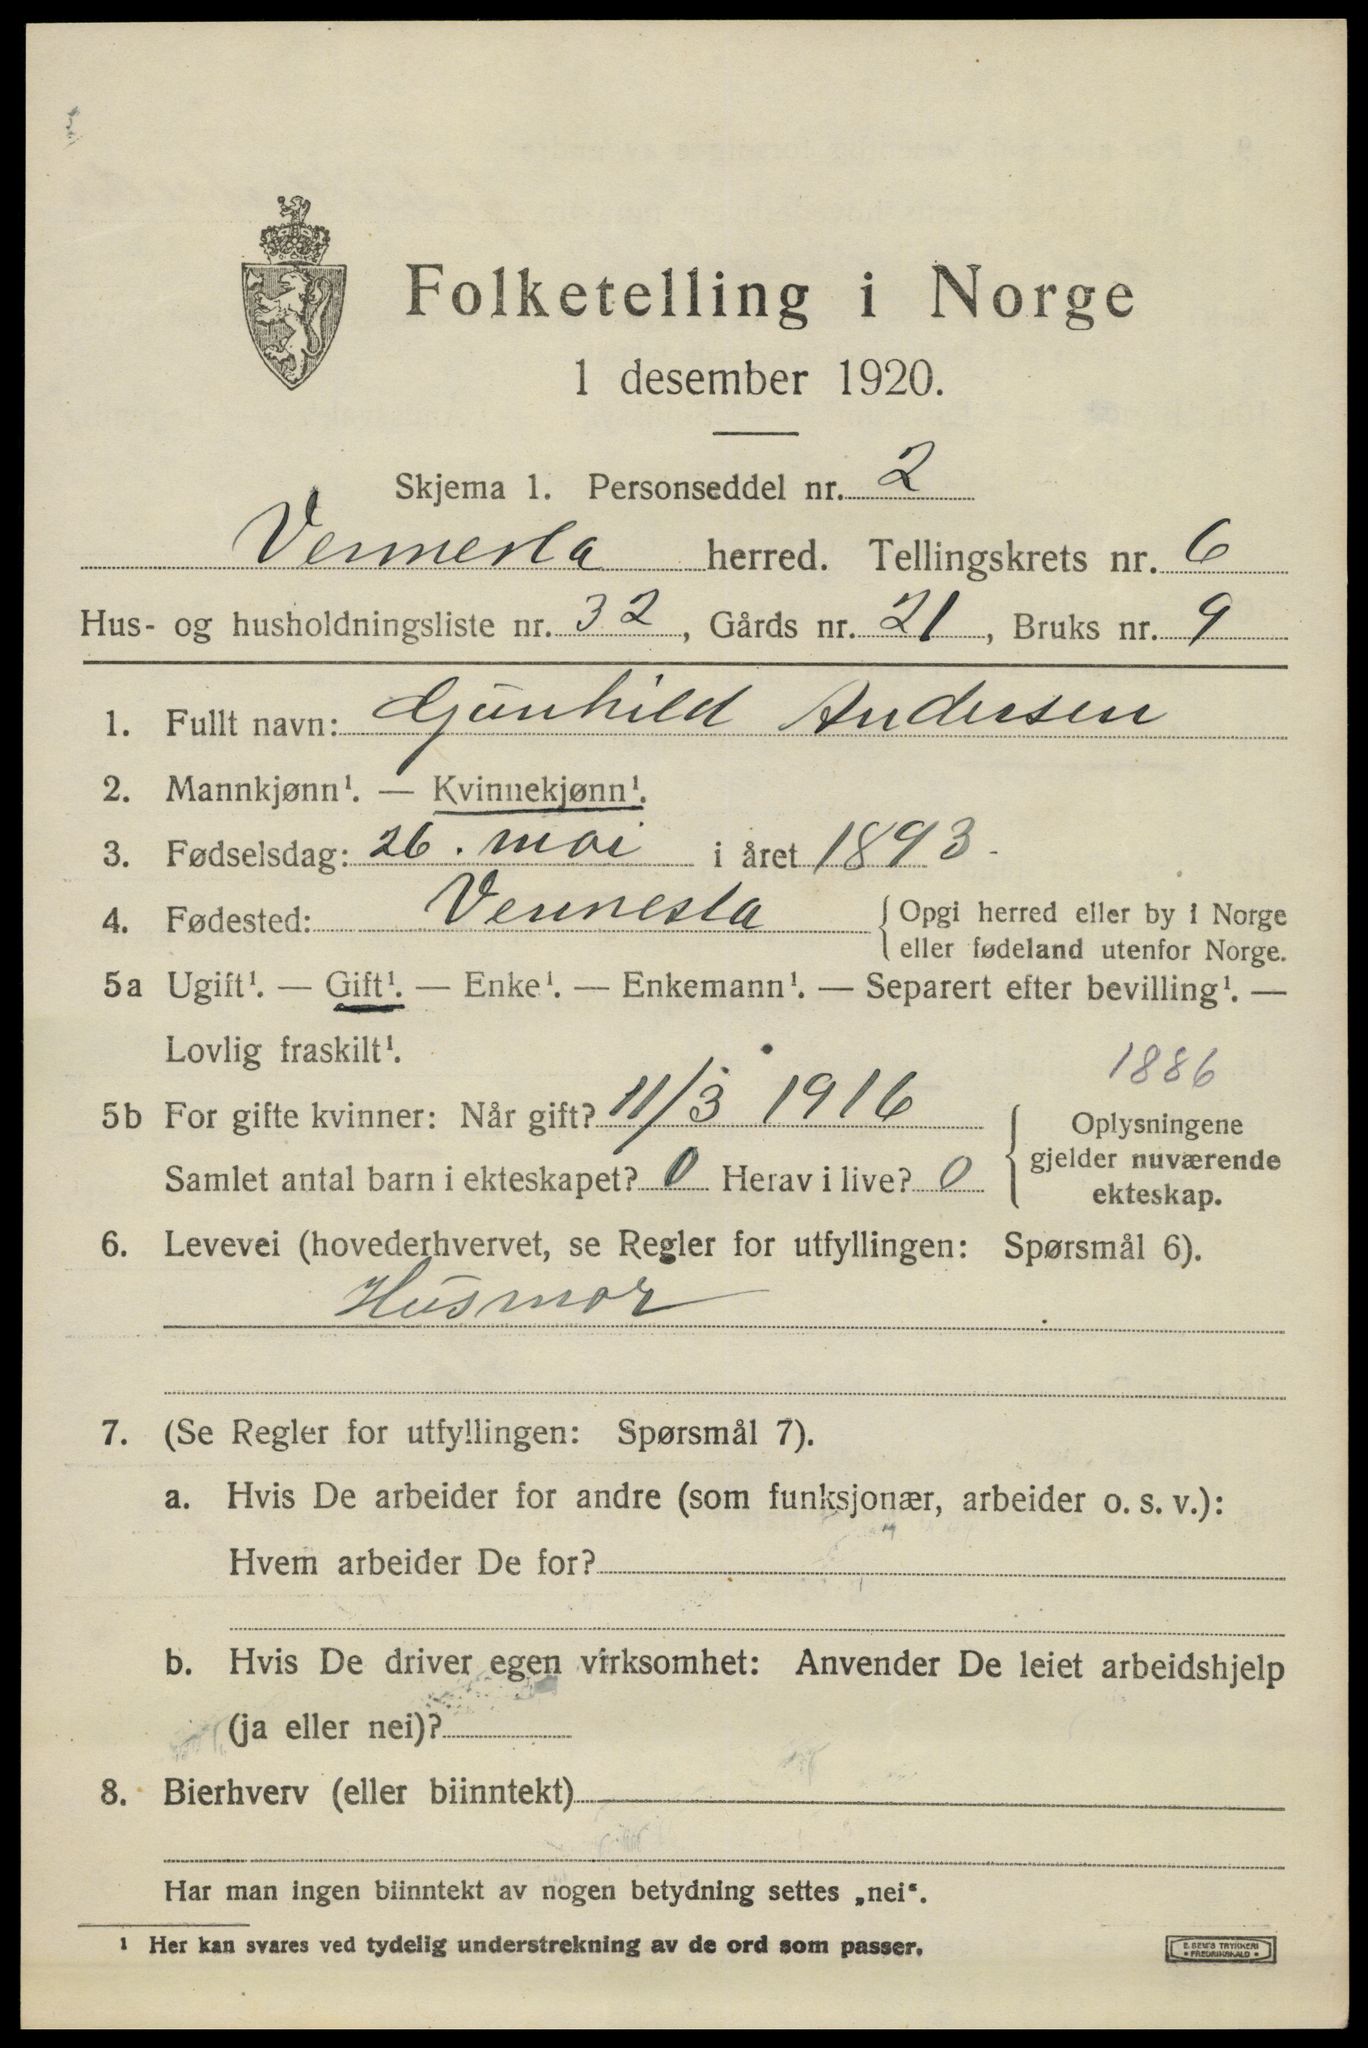 Folketelling i Norge
1 desember 1920.
Skjema 1. Personseddel nr. 2
Vennesla herred. Tellingskrets nr. 6
Hus- og husholdningsliste nr. 32, Gårds nr. 21, Bruks nr. 9
1. Fullt navn: Gunhild Andersen
2. Mannkjønn¹. — Kvinnekjønn¹.
3. Fødselsdag: 26. mai i året 1893.
4. Fødested: Vennesla { Opgi herred eller by i Norge
eller fødeland utenfor Norge.
5a Ugift¹. — Gift¹. — Enke¹. — Enkemann¹. — Separert efter bevilling¹. —
Lovlig fraskilt¹.
1886
5b For gifte kvinner: Når gift? 11/3 1916
Samlet antal barn i ekteskapet? 0 Herav i live? 0
{ Oplysningene
gjelder nuværende
ekteskap.
6. Levevei (hovederhvervet, se Regler for utfyllingen: Spørsmål 6).
Husmor
7. (Se Regler for utfyllingen: Spørsmål 7).
a. Hvis De arbeider for andre (som funksjonær, arbeider o. s. v.):
Hvem arbeider De for?
b. Hvis De driver egen virksomhet: Anvender De leiet arbeidshjelp
(ja eller nei)?
8. Bierhverv (eller biinntekt)
Har man ingen biinntekt av nogen betydning settes „nei“.
¹ Her kan svares ved tydelig understrekning av de ord som passer.
E. SEM'S TRYKKERI
• FREDRIKSHALD •